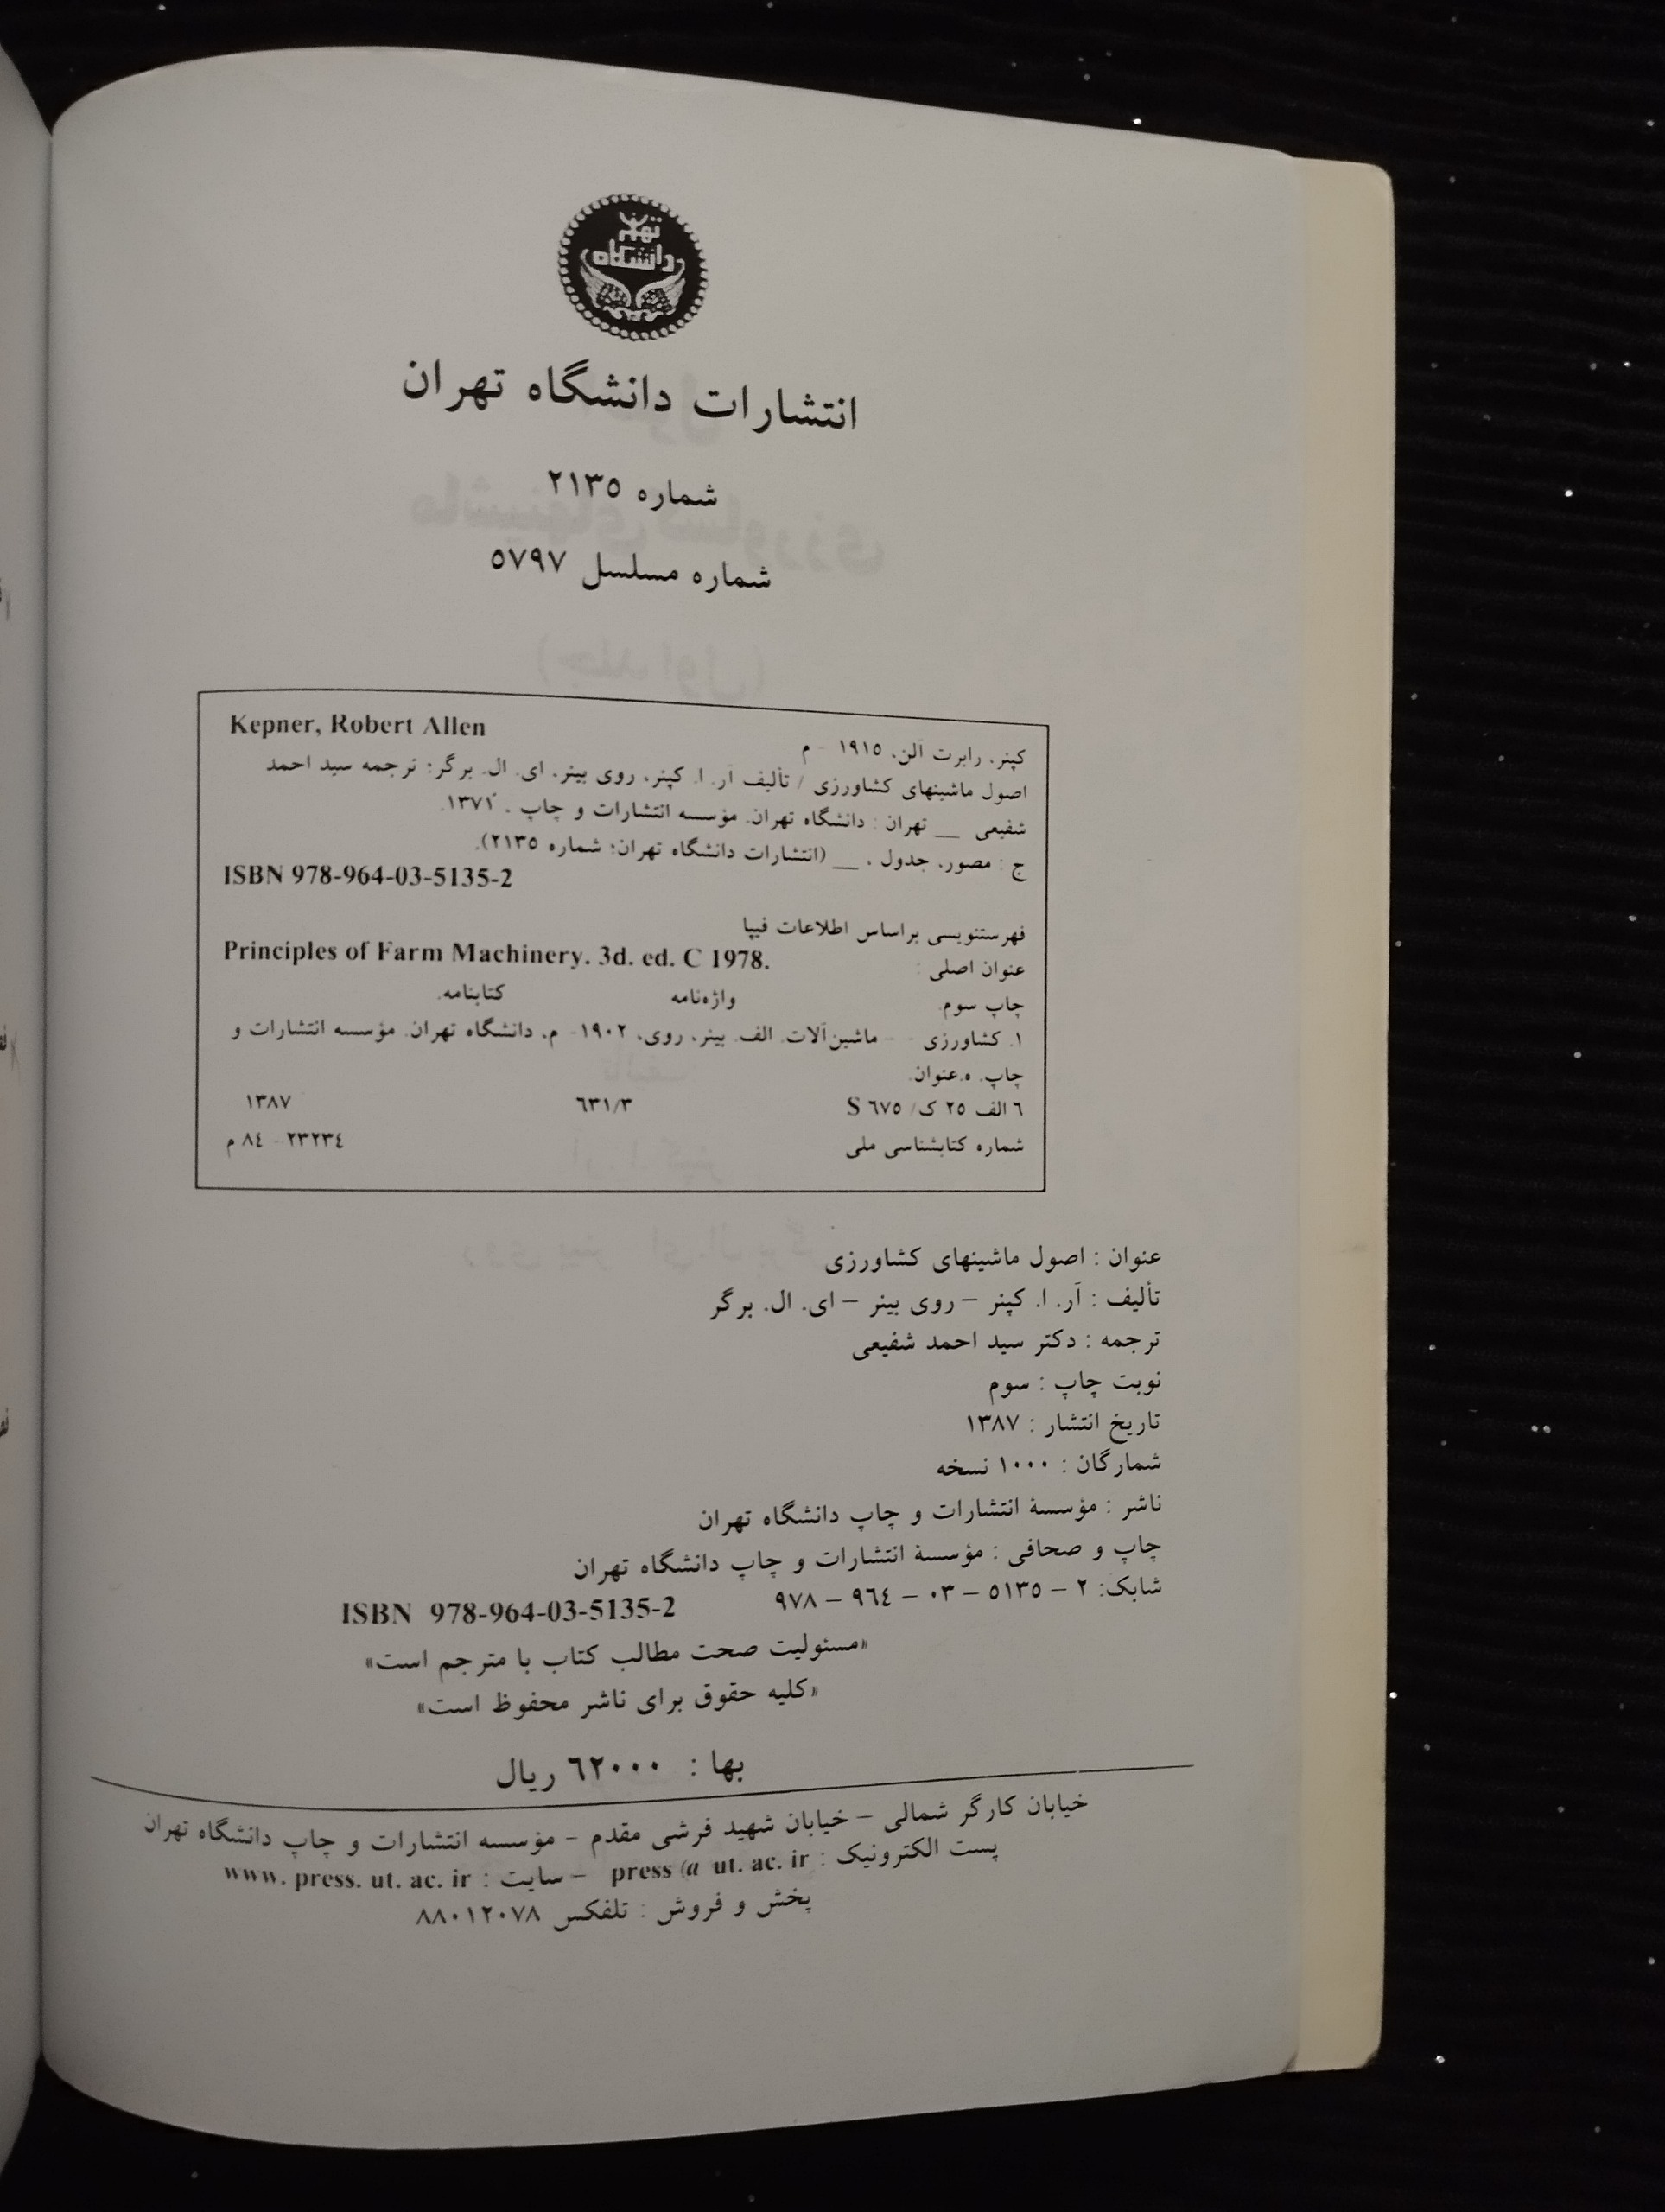 تهران
دانشگاه
انتشارات دانشگاه تهران
شماره ٢١٣٥
شماره مسلسل ٥٧٩٧
Kepner, Robert Allen
کپنر، رابرت آلن، ١٩١٥ - م
اصول ماشینهای کشاورزی / تألیف آر. ا. کپنر، روی بینر، ای. ال. برگر؛ ترجمه سید احمد
شفیعی __ تهران : دانشگاه تهران. مؤسسه انتشارات و چاپ ، ١٣٧١.
ج : مصور، جدول . __ (انتشارات دانشگاه تهران؛ شماره ٢١٣٥).
ISBN 978-964-03-5135-2
فهرستنویسی براساس اطلاعات فیپا
عنوان اصلی : Principles of Farm Machinery. 3d. ed. C 1978.
چاپ سوم. واژه‌نامه کتابنامه.
١. کشاورزی - - ماشین‌آلات. الف. بینر، روی، ١٩٠٢- م. دانشگاه تهران. مؤسسه انتشارات و
چاپ. ه.عنوان.
٦ الف ٢٥ ک/ ٦٧٥ S ٦٣١/٣ ١٣٨٧
شماره کتابشناسی ملی ٢٣٢٣٤- ٨٤ م
عنوان : اصول ماشینهای کشاورزی
تألیف : آر. ا. کپنر – روی بینر – ای. ال. برگر
ترجمه : دکتر سید احمد شفیعی
نوبت چاپ : سوم
تاریخ انتشار : ١٣٨٧
شمارگان : ١٠٠٠ نسخه
ناشر : مؤسسهٔ انتشارات و چاپ دانشگاه تهران
چاپ و صحافی : مؤسسهٔ انتشارات و چاپ دانشگاه تهران
شابک: ٢ – ٥١٣٥ – ٠٣ – ٩٦٤ – ٩٧٨ ISBN 978-964-03-5135-2
«مسئولیت صحت مطالب کتاب با مترجم است»
«کلیه حقوق برای ناشر محفوظ است»
بها : ٦٢٠٠٠ ریال
خیابان کارگر شمالی – خیابان شهید فرشی مقدم – مؤسسه انتشارات و چاپ دانشگاه تهران
پست الکترونیک : press @ ut. ac. ir – سایت : www. press. ut. ac. ir
پخش و فروش : تلفکس ٨٨٠١٢٠٧٨